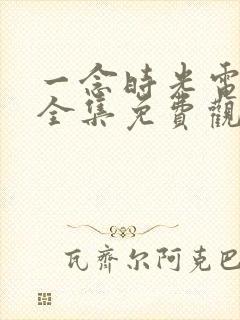 一念時光電
全集免費觀
瓦齊尔阿克巴